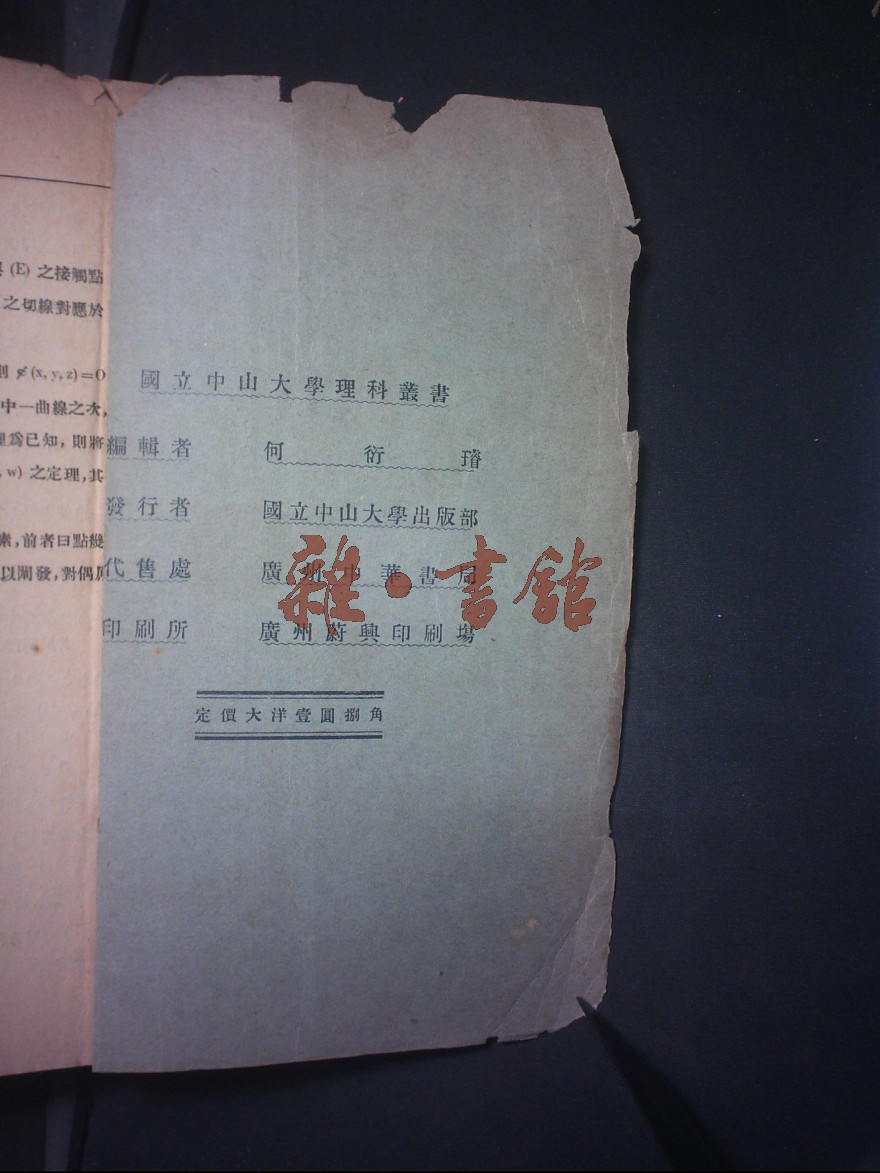 (E) 之接觸點
之切線對應於
則 𝜙(x, y, z)=O
中一曲線之次,
理爲已知，則將
, w) 之定理，其
素，前者曰點幾
以闡發，對偶
國立中山大學理科叢書
編輯者 何衍璿
發行者 國立中山大學出版部
代售處 廣州中華書局
印刷所 廣州蔚興印刷塲
定價大洋壹圓捌角
雜·書館